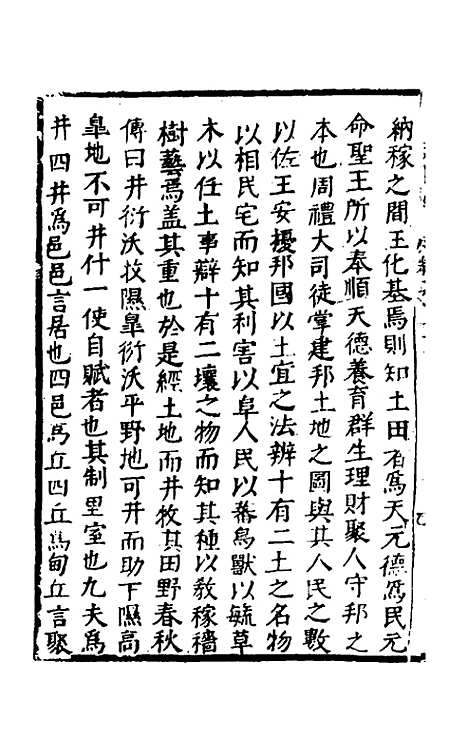 納稼之間王化基焉則知土田者爲天元德爲民元
命聖王所以奉順天德養育群生理財聚人守邦之
本也周禮大司徒掌建邦土地之圖與其人民之數
以佐王安擾邦國以土宜之法辨十有二土之名物
以相民宅而知其利害以阜人民以蕃鳥獸以毓草
木以任土事辯十有二壤之物而知其種以敎稼穡
樹藝焉盖其重也於是經土地而井牧其田野春秋
傳曰井衍沃牧隰臯衍沃平野地可井而助下隰高
臯地不可井什一使自賦者也其制里室也九夫爲
井四井爲邑邑言居也四邑爲丘四丘爲甸丘言聚